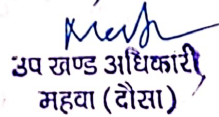 उप खण्ड अधिकारी,
महवा (दौसा)